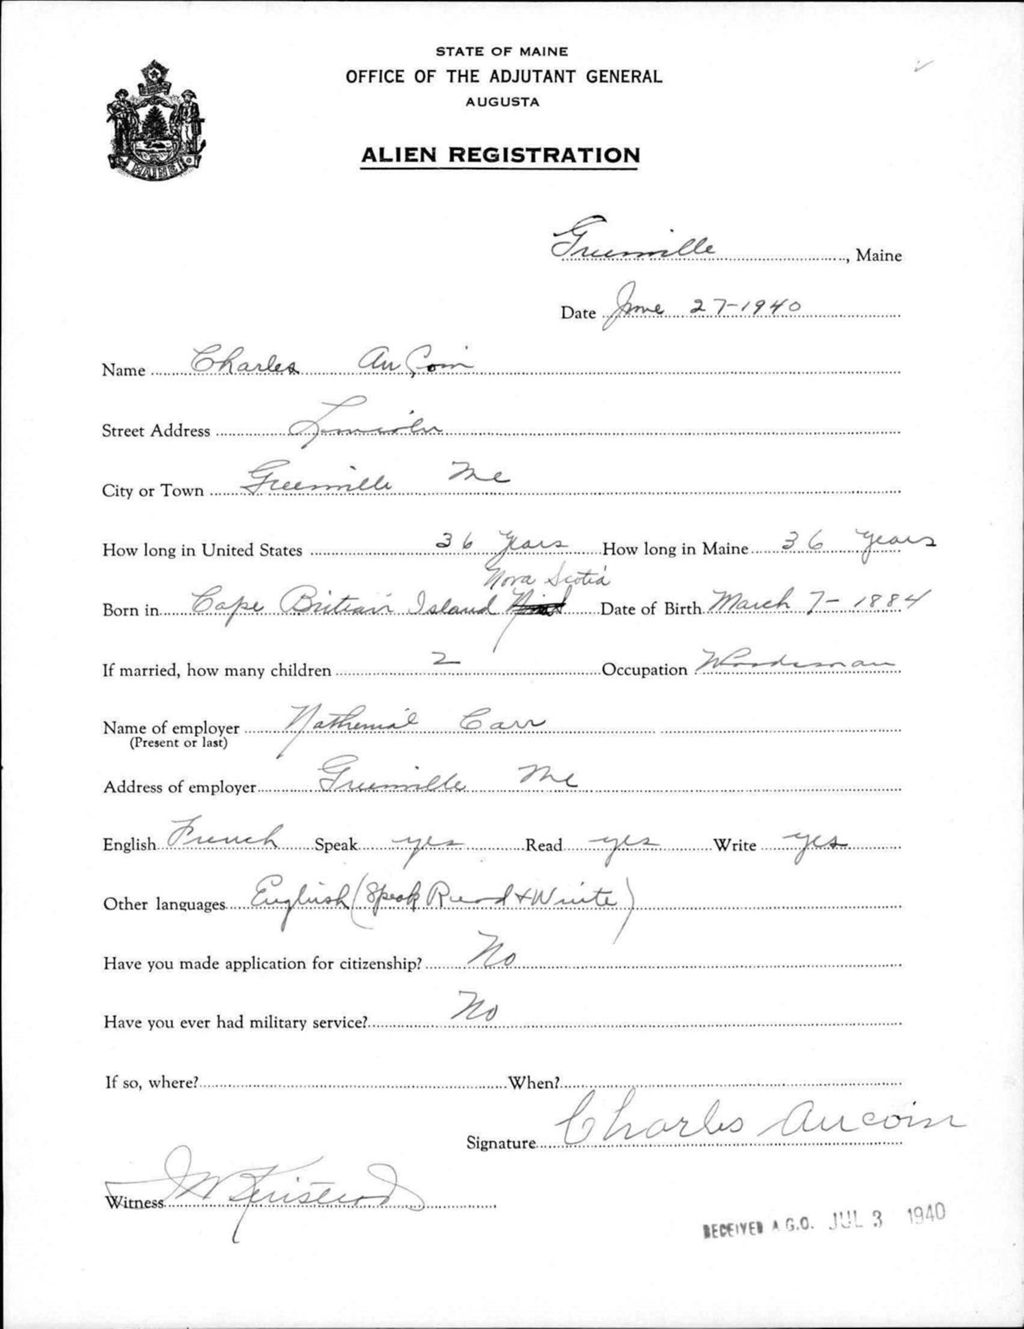 STATE OF MAINE
OFFICE OF THE ADJUTANT GENERAL
AUGUSTA
ALIEN REGISTRATION
MAINE
Greenville, Maine
Date June 27-1940
Name Charles AuCoin
Street Address Lincoln
City or Town Greenville Me
How long in United States 36 Years How long in Maine 36 Years
Nova Scotia
Born in Cape Britian Island Date of Birth March 7-1884
If married, how many children 2 Occupation Woodsman
Name of employer Nathenial Carr
(Present or last)
Address of employer Greenville Me
English French Speak yes Read yes Write yes
Other languages English (Speak Read + Write)
Have you made application for citizenship? No
Have you ever had military service? No
If so, where? When?
Signature Charles Aucoin
Witness
RECEIVED A.G.O. JUL 3 1940